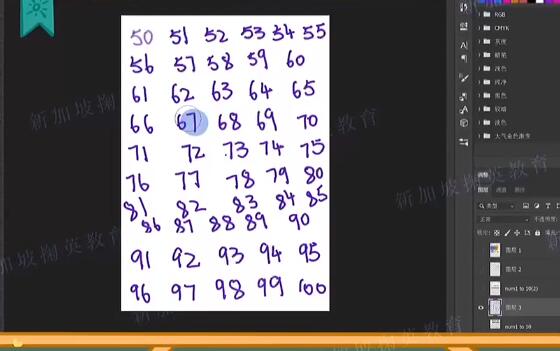 50 51 52 53 54 55
56 57 58 59 60
61 62 63 64 65
66 67 68 69 70
71 72 73 74 75
76 77 78 79 80
81 82 83 84 85
86 87 88 89 90
91 92 93 94 95
96 97 98 99 100
RGB
CMYK
灰度
蜡笔
浅色
纯净
黑色
较暗
淡色
大气金色渐变
调整
图层 通道 路径
类型
正常 不透明度:
锁定:
图层 1
图层 2
num1 to 10(2)
图层 3
num1 to 10
新加坡掬英教育
新加坡掬英教育
新加坡掬英教育